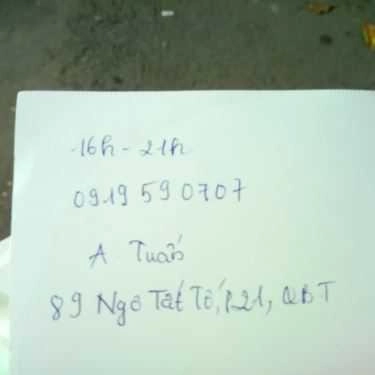 16h - 21h
0919 590707
A Tuấn
89 Ngô Tất Tố, P21, QBT